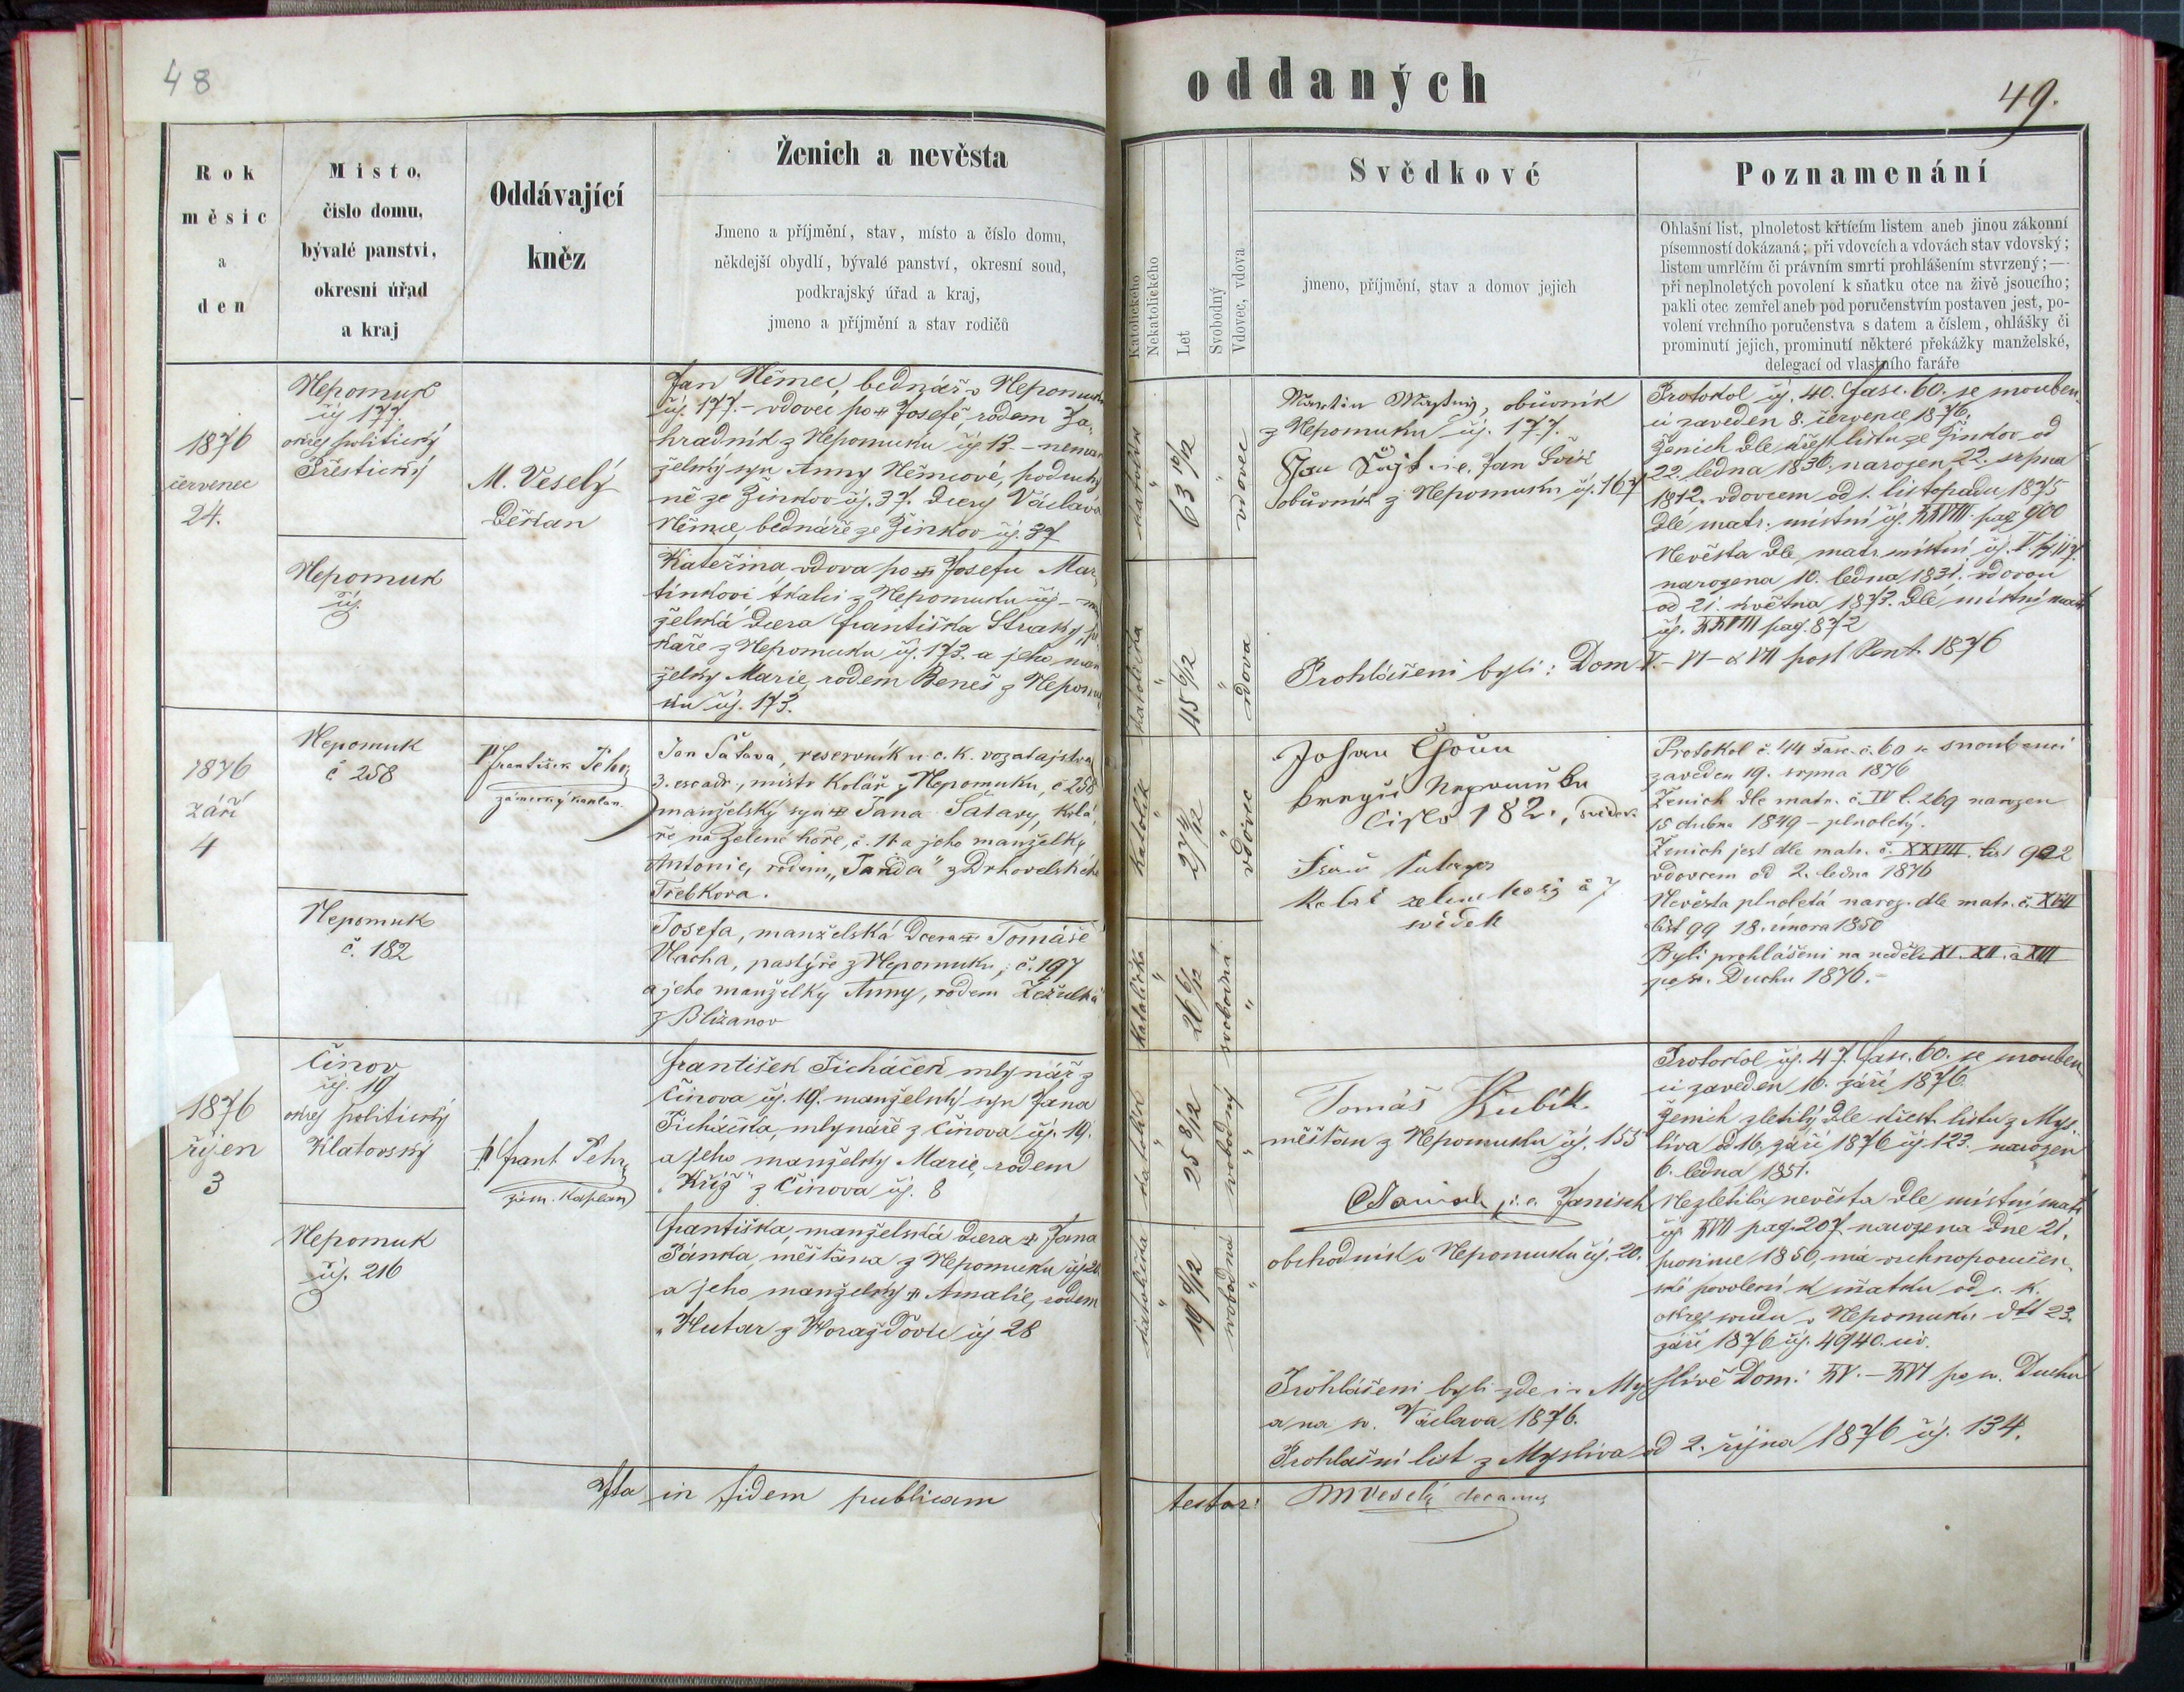 48
Rok
měsíc
a
den
Místo,
číslo domu,
bývalé panství,
okresní úřad
a kraj
Oddávající
kněz
Ženich a nevěsta
Jmeno a příjmění, stav, místo a číslo domu,
někdejší obydlí, bývalé panství, okresní soud,
podkrajský úřad a kraj,
jmeno a příjmění a stav rodičů
1876
červenec
24.
Nepomuk
čj 177.
okres politický
Přestický
Nepomuk
čj.
M. Veselý
Děkan
Jan Němec, bednář v Nepomuku
čj. 177. – vdovec po Josefě, rodem Za-
hradník z Nepomuku čj. 13 – neman
želský syn Anny Němcové, podruhy
ně ze Žinkov čj. 37. dcery Václava
Němce, bednáře ze Žinkov čj. 37
Kateřina vdova po Josefu Mar-
tínkovi tkalci z Nepomuku čj – man
želská dcera Františka Straky,
kaře z Nepomuku čj. 173. a jeho man
želky Marie, rodem Beneš z Nepomu
ku čj. 173.
1876
září
4
Nepomuk
č 258
Nepomuk
č. 182
P František Pehr
zámecký kaplan
Jan Šatava, reservník u c. k. vozatajstva
3. escadr., mistr kolář z Nepomuku, č 258
manželský syn Jana Šatavy, kolá-
ře na Zelené hoře, č. 11 a jeho manželky
Antonie, rodem „Janda" z Drhovelského
Třebkova.
Josefa, manželská dcera Tomáše
Vlacha, pastýře z Nepomuku, č. 197
a jeho manželky Anny, rodem Žežulka
z Bližanov
1876
říjen
3
Činov
čj. 19
okres politický
Klatovský
Nepomuk
čj. 216
P Frant Pehr
zám. Kaplan
František Ticháček mlynář z
Činova čj. 19. manželský syn Jana
Ticháčka, mlynáře z Činova čj. 19.
a jeho manželky Marie, rodem
„Kříž" z Činova čj. 8
Františka, manželská dcera Jana
Pánka, měšťana z Nepomuku čj 20.
a jeho manželky Amalie, rodem
„Hutar z Horažďovic čj 28
Ita in fidem publicam
oddaných
49.
Katolického
Nekatolického
Let
Svobodný
Vdovec, vdova
Svědkové
jmeno, příjmění, stav a domov jejich
Poznamenání
Ohlašní list, plnoletost křtícím listem aneb jinou zákonní
písemností dokázaná; při vdovcích a vdovách stav vdovský;
listem umrlčím či právním smrti prohlášením stvrzený; —
při neplnoletých povolení k sňatku otce na živě jsoucího;
pakli otec zemřel aneb pod poručenstvím postaven jest, po-
volení vrchního poručenstva s datem a číslem, ohlášky či
prominutí jejich, prominutí některé překážky manželské,
delegací od vlastního faráře
katolík
63 10/12
vdovec
katolička
45 6/12
vdova
Martin, obuvník
z Nepomuku čj. 177.
Jan i. e. Jan
obuvník z Nepomuku čj. 167
Protokol čj. 40. fasc. 60. se snouben-
ci zaveden 8. července 1876.
Ženich dle křest listu ze Žinkov od
22. ledna 1836. narozen 22. srpna
1812. vdovcem od 1. listopadu 1875
dle matr. místní čj. XXVIII. pag 900
Nevěsta dle matr. místní čj.
narozena 10. ledna 1831. vdovou
od 21. května 1873. dle místní matr
čj. XXVIII pag. 872
Prohlášeni byli: Dom V. – VI – & VII post Pent. 1876
Katolík
27 4/12
vdovec
Katolička
26 6/12
svobodná
Johan
Nepomuku
Cislo 182., svědek
č 7
svědek
Protokol č. 44 Fasc. č. 60 se snoubenci
zaveden 19. srpna 1876
Ženich dle matr. č. IV l. 269 narozen
15 dubna 1849 – plnoletý.
Ženich jest dle matr. č. XXVIII. list 902
vdovcem od 2. ledna 1876
Nevěsta plnoletá naroz. dle matr. č. XVII
list 99 18. února 1850
Byli prohlášeni na neděle XI. XII. a XIII
po sv. Duchu 1876. –
katolík
25 8/12
svobodný
katolička
19 9/12
svobodná
Tomáš Kubík.
měšťan z Nepomuku čj. 155
Janisch, i. e. Janisch
obchodník v Nepomuku čj. 20.
Protokol čj. 47. fasc. 60. se snouben
ci zaveden 16. září 1876.
Ženich zletilý dle křest. listu z Mys-
líva od 16. září 1876 čj. 123. narozen
6. ledna 1851.
Nezletilá nevěsta dle místní matr
čj. XVII pag. 207. narozena dne 21.
prosince 1856, má vrchnoporučen-
ské povolení k sňatku od c. k.
okres soudu v Nepomuku dtt 23.
září 1876 čj. 4940. civ.
Prohlášeni byli zde i v Myslívě Dom: XV. – XVI po sv. Duchu
a na sv. Václava 1876.
Prohlašní list z Myslíva od 2. října 1876 čj. 134.
testor: MVeselý decanus